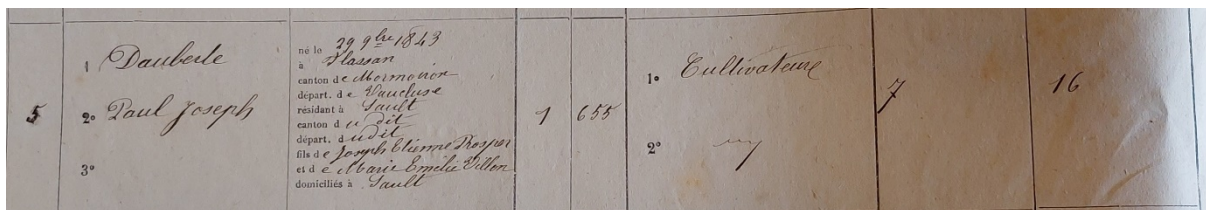 5
1 Dauberte
2° Paul Joseph
3°
né le 29 9bre 1843
à Flassan
canton de Mormoiron
départ. de Vaucluse
résidant à Sault
canton du dit
départ. dudit
fils de Joseph Etienne Prosper
et de Marie Emélie Villon
domiciliés à Sault
1
655
1° Cultivateur
2°
7
16